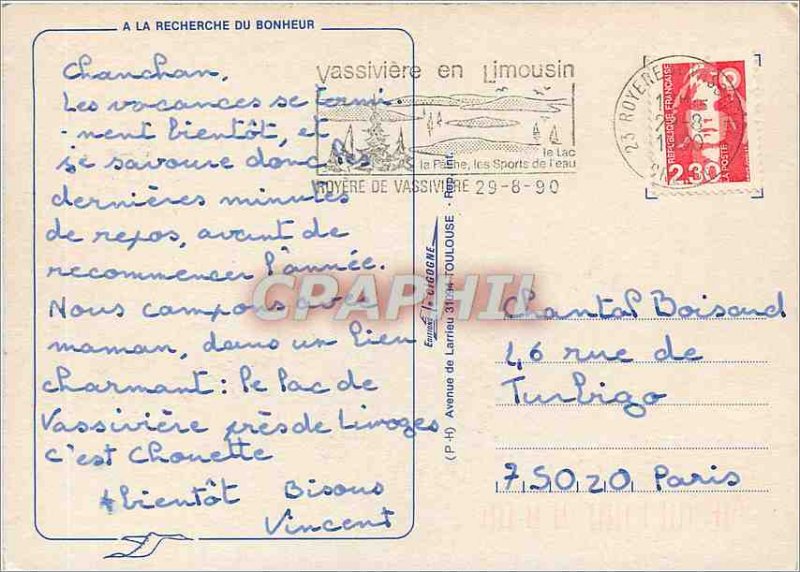 A LA RECHERCHE DU BONHEUR
Chanchan,
Les vacances se termi
-nent bientôt, et
je savoure donc les
dernières minutes
de repos, avant de
recommencer l'année.
Nous campons avec
maman, dans un lieu
charmant : le lac de
Vassivière près de Limoges
C'est Chouette
A bientôt Bisous
Vincent
Vassivière en Limousin
le Lac
la Pêche, les Sports de l'eau
ROYÈRE DE VASSIVIÈRE 29-8-90
23 ROYERE
REPUBLIQUE FRANÇAISE
LA POSTE
2,30
Editions la CIGOGNE
(P.H) Avenue de Larrieu TOULOUSE - Rep. Int.
CPAPHIL
Chantal Boisard
46 rue de
Turbigo
75020 Paris